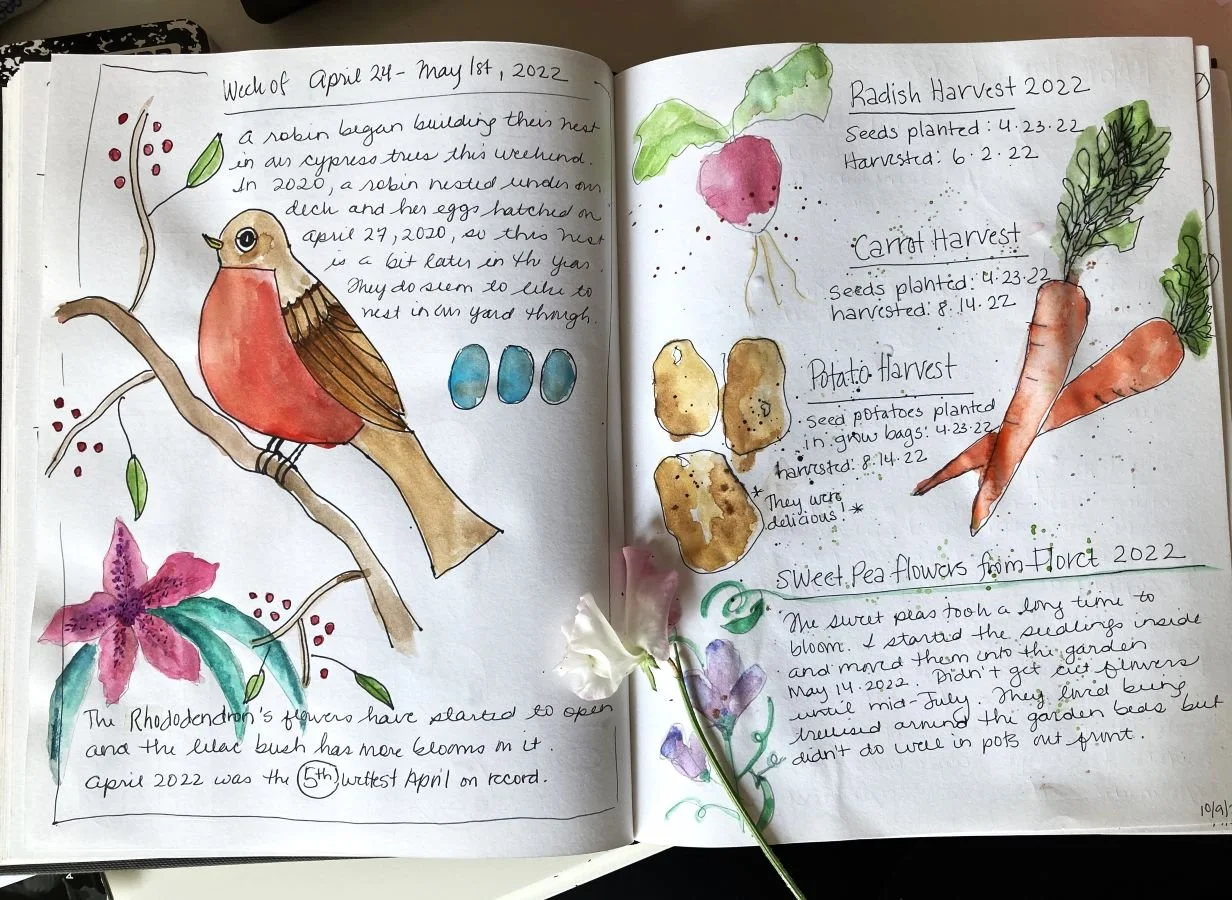 Week of April 24 - May 1st, 2022
A robin began building their nest
in our cypress trees this weekend.
In 2020, a robin nested under our
deck and her eggs hatched on
April 27, 2020, so this nest
is a bit later in the year.
They do seem to like to
nest in our yard though.
The Rhododendron's flowers have started to open
and the lilac bush has more blooms on it.
April 2022 was the 5th wettest April on record.
Radish Harvest 2022
Seeds planted: 4.23.22
Harvested: 6.2.22
Carrot Harvest
seeds planted: 4.23.22
harvested: 8.14.22
Potato Harvest
seed potatoes planted
in grow bags: 4.23.22
harvested: 8.14.22
*They were
delicious!*
Sweet Pea flowers from Floret 2022
The sweet peas took a long time to
bloom. I started the seedlings inside
and moved them into the garden
May 14.2022. Didn't get cut flowers
until mid-July. They loved being
trellised around the garden beds but
didn't do well in pots out front.
10/9/